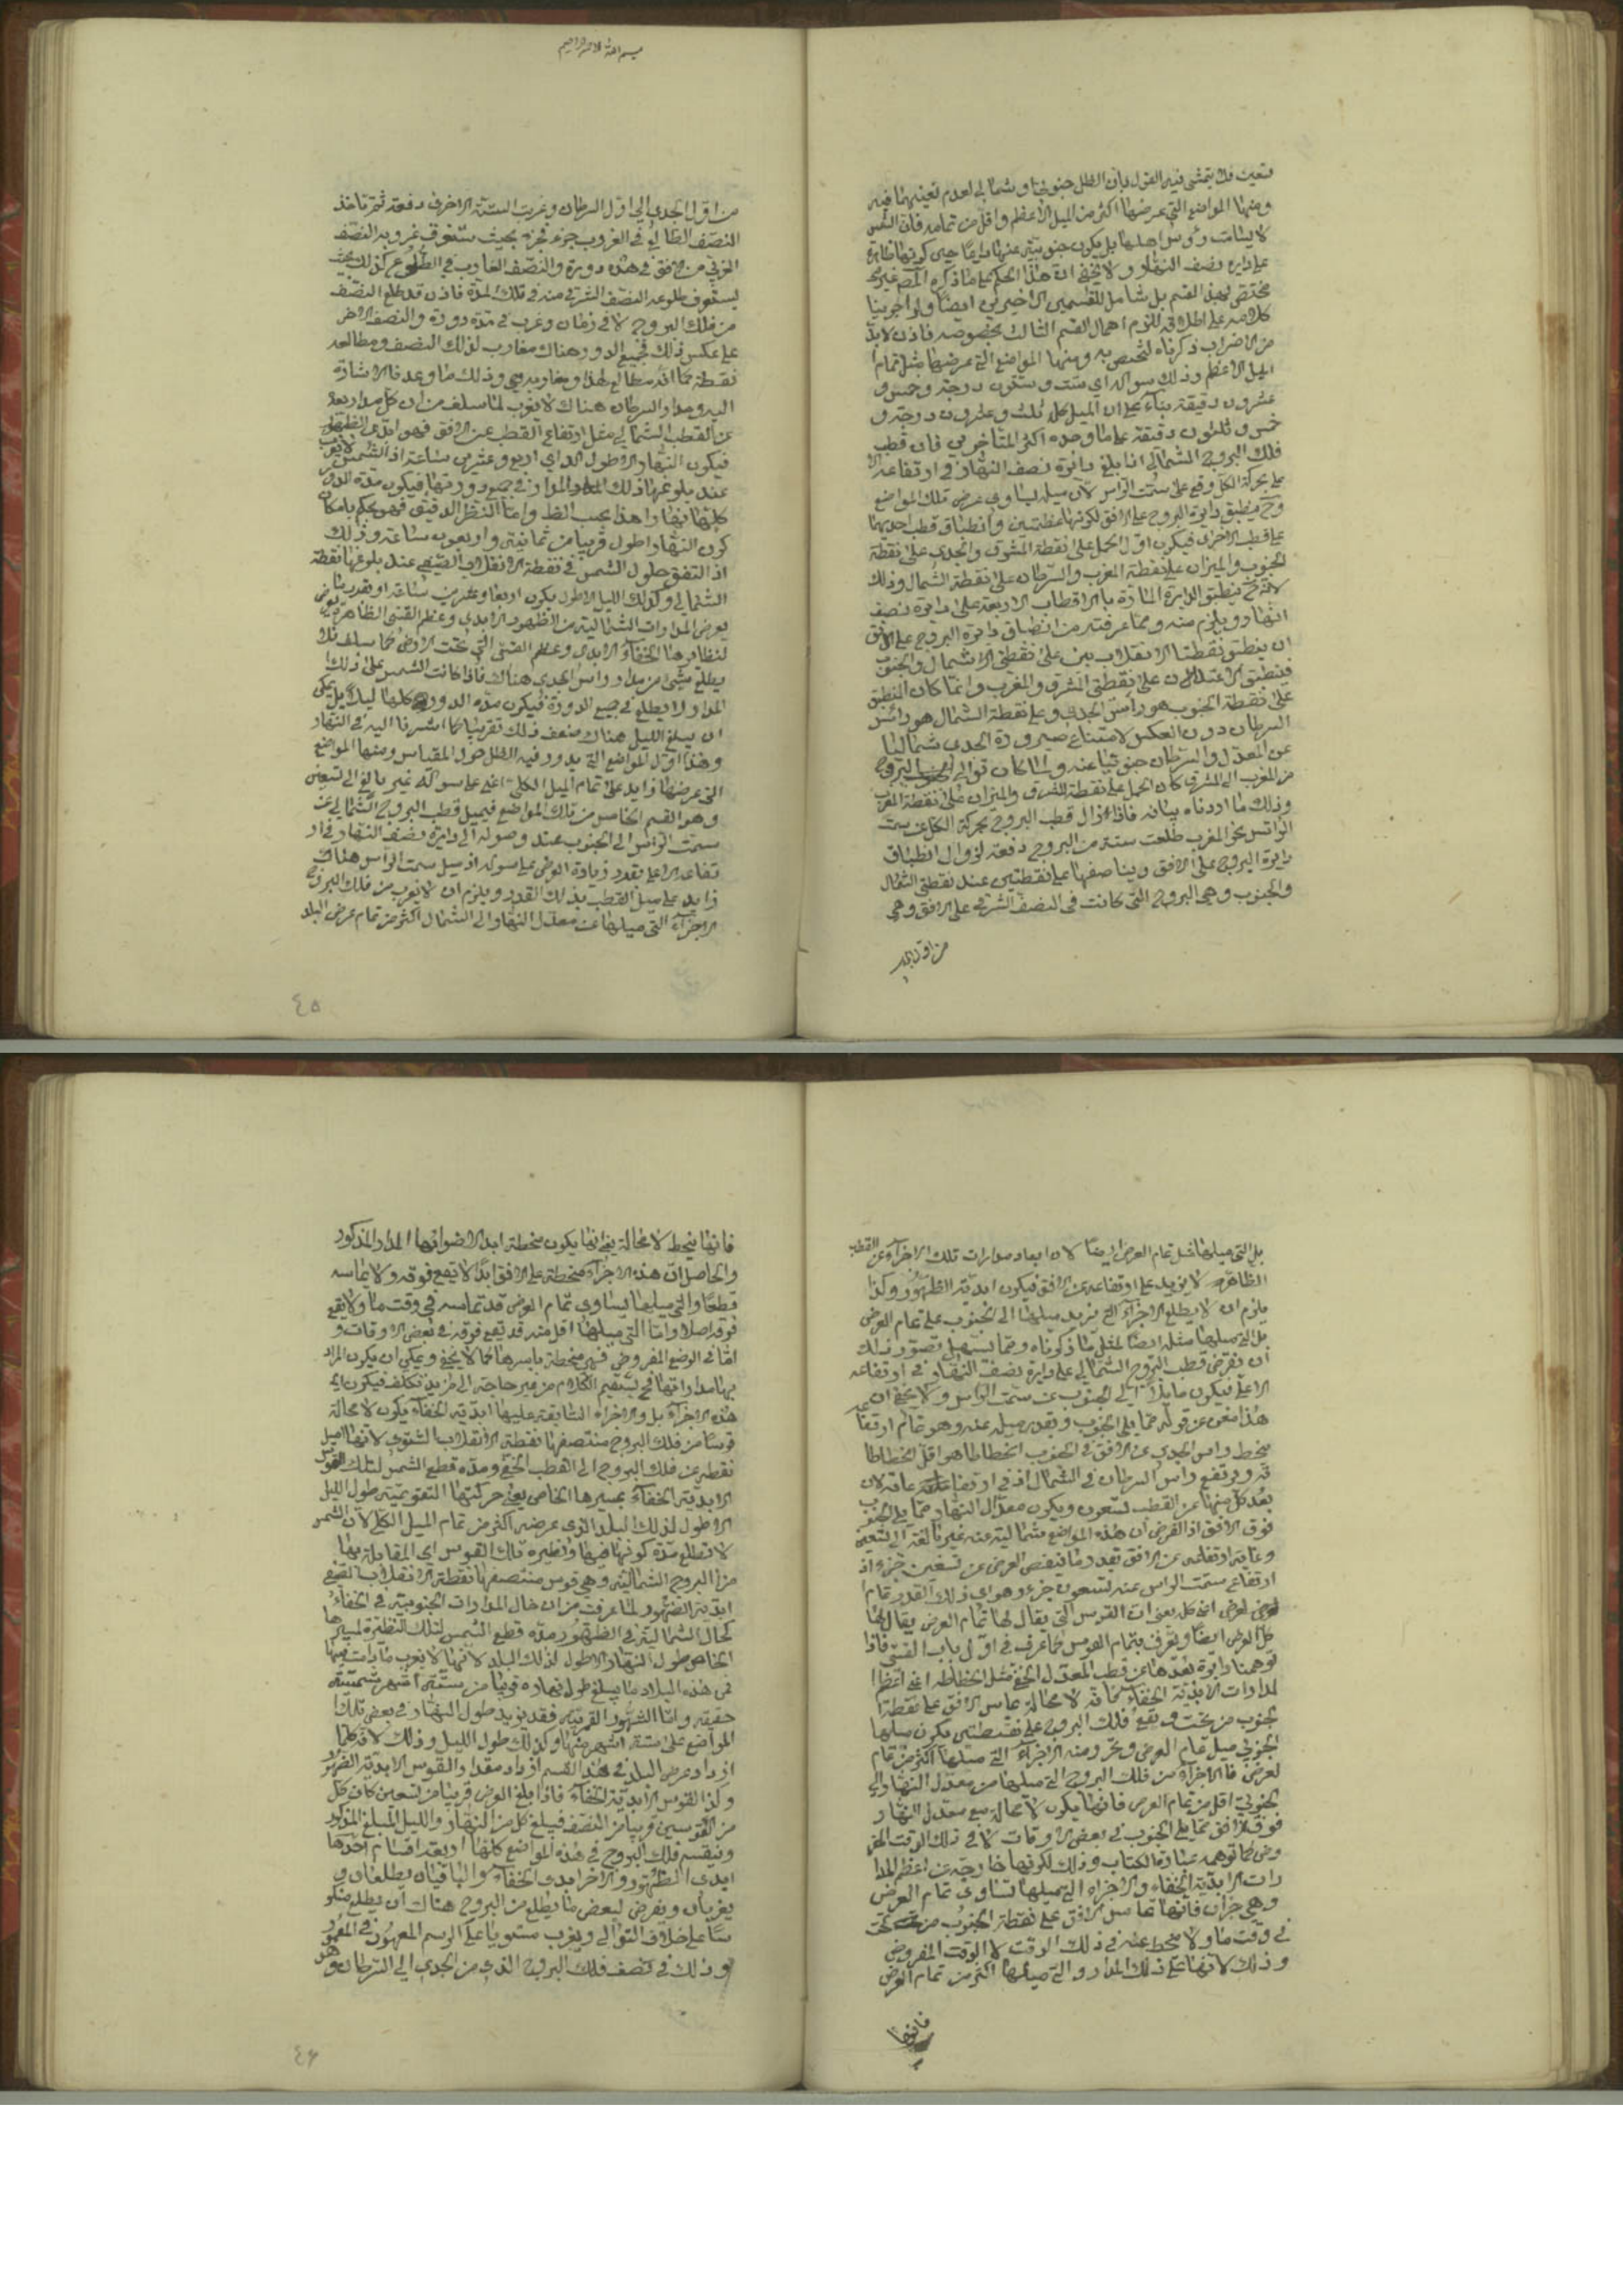 فتعين فلا يتمشى فيه القول بان الظل جنوبيا وشمالي لعدم تعينهما فيه
ومنها المواضع التي عرضها اكثر من الميل الاعظم واقل من تمامه فان الشمس
لا يسامت رؤس اهلها بل يكون جنوبية عنها دايما حين كونها ظاهرة
على دايرة نصف النهار ولا يخفى ان هذا الحكم على ما ذكره المص غير
مختص بهذا القسم بل شامل للقسمين الاخيرين ايضا ولو اجرينا
كلامه على اطلاقه للزم اهمال القسم الثالث بخصوصه فاذن لا بد
من الاضراب ذكرناه لتختص به ومنها المواضع التي عرضها مثل تمام
الميل الاعظم وذلك سوا اي ست وستون درجة وخمس و
عشرون دقيقة بناء على ان الميل كله ثلث وعشرون درجة و
خمس وثلثون دقيقة على ما وجده اكثر المتاخرين فان قطب
فلك البروج الشمالي اذا بلغ دائرة نصف النهار في ارتفاعه الا
على بحركة الكل وقع على سمت الراس لان ميله يساوي عرض تلك المواضع
وح ينطبق دايرة البروج على الافق لكونهما عظيمتين وانطباق قطب احديهما
على قطب الاخرى فيكون اول الحمل على نقطة المشرق والجدي على نقطة
الجنوب والميزان على نقطة المغرب والسرطان على نقطة الشمال وذلك
لانه ح ينطبق الدايرة المارة بالاقطاب الاربعة على دايرة نصف
النهار ويلزم منه ومما عرفته من انطباق دايرة البروج على الافق
ان ينطبق نقطتا الانقلابين على نقطتي الشمال والجنوب
فينطبق الاعتدالان على نقطتي المشرق والمغرب وانما كان المنطبق
على نقطة الجنوب هو راس الجدي وعلى نقطة الشمال هو راس
السرطان دون العكس لامتناع صيرورة الجدي شماليا
عن المعدل والسرطان جنوبيا عنه ولما كان توالي البروج
من المغرب الى المشرق كان الحمل على نقطة المشرق والميزان على نقطة المغرب
وذلك ما اردناه بيانه فاذا زال قطب البروج بحركة الكل عن سمت
الراس نحو المغرب طلعت ستة من البروج دفعة لزوال انطباق
دايرة البروج على الافق ويناصفها على نقطتين عند نقطتي الشمال
والجنوب وهي البروج التي كانت في النصف الشرقي على الافق وهي
من اول الجد
بسم الله الرحمن الرحيم
من اول الجدي الى اول السرطان وغربت الستة الاخرى دفعة ثم تاخذ
النصف الطالع في الغروب جزء فجزء بحيث يستغرق غروبه النصف
الغربي من الافق في هذه دورة والنصف الغارب في الطلوع كذلك بحيث
يستغرق طلوعه النصف الشرقي منه في تلك المدة فاذن قد طلع النصف
من فلك البروج لا في زمان وغرب في مدة دورة والنصف الاخر
على عكس ذلك في جميع الدور وهناك مغارب لذلك النصف ومطالعه
نقطة كما انه مطالع لهذا ومغاربه هي وذلك ما وعدنا الاشارة
اليه ومدار السرطان هناك لا يغرب لما سلف من ان كل مدار بعد
عن القطب الشمالي مثل ارتفاع القطب عن الافق فهو ابدي الظهور
فيكون النهار الاطول اي اربع وعشرين ساعة اذ الشمس لا تغرب
عند بلوغها ذلك المدار في جميع دورتها فيكون مدة الدور
كلها نهارا هذا بحسب الظ واما النظر الدقيق فهو يحكم بامكان
كون النهار اطول قريبا من ثمانية واربعون ساعة وذلك
اذا اتفق حلول الشمس في نقطة الانقلاب الصيفي عند بلوغها نقطة
الشمالي وكذلك الليل الاطول يكون اربعا وعشرين ساعة
لنظايرها الخفاء الابدي وعظم القسي التي تحت الارض كما سلف فلا
يطلع شئ من مدار راس الجدي هناك فاذا كانت الشمس على ذلك
المدار لا يطلع في جميع الدورة فيكون مدة الدورة كلها ليلا بل يمكن
ان يبلغ الليل هناك ضعف ذلك تقريبا كما اشرنا اليه في النهار
وهذا اول المواضع التي يدور فيه الظل حول المقياس ومنها المواضع
التي عرضها زايد على تمام الميل الكلي اعني على سو كه غير بالغ الى تسعين
وهو القسم الخامس من تلك المواضع فيميل قطب البروج الشمالي عن
سمت الراس الى الجنوب عند وصوله الى دايرة نصف النهار في ار
تفاعه الاعلى بقدر زيادة العرض على سو كه اذ ميل سمت الراس هناك
زايد على ميل القطب بذلك القدر ويلزم ان لا يغرب من فلك البروج
الاجزاء التي ميلها عن معدل النهار الى الشمال اكثر من تمام عرض البلد
٤٥
بل التي ميلها مثل تمام العرض ايضا لان ابعاد مدارات تلك الاجزاء عن القطب
الظاهر لا يزيد على ارتفاعه عن الافق فيكون ابدية الظهور وكذا
يلزم ان لا يطلع الاجزاء التي يزيد ميلها الى الجنوب على تمام العرض
بل التي ميلها مثله ايضا لمثل ما ذكرناه ومما يسهل تصور ذلك
ان نفرض قطب البروج الشمالي على دايرة نصف النهار في ارتفاعه
الاعلى فيكون مايلا الى الجنوب عن سمت الراس ولا يخفى ان
هذا مغن عن قوله مما يلي الجنوب وبقدر ميله عنه وهو تمام ارتفا
ينحط راس الجدي عن الافق في الجنوب انحطاطا هو اقل انحطاطا
ته ويرتفع راس السرطان في الشمال
بعد كل منهما عن القطب تسعون ويكون معدل النهار مما يلي الجنوب
فوق الافق اذ الفرض ان هذه المواضع شمالية عنه غير بالغة الى تسعين
وغاية ارتفاعه عن الافق بقدر ما ينقص العرض عن تسعين جزءا اذ
ارتفاع سمت الراس عنه تسعون جزء وهو اي ذلك القدر تمام
كل العرض ايضا ويعرف بتمام القوس كما عرف في اول باب القسي فاذا
توهمنا دايرة بعدها عن قطب المعدل الخفي مثل انحطاطه اعني اعظم
لمدارات الابدية الخفاء فانه لا محالة يماس الافق على نقطة
لجنوب من تحت ويقع فلك البروج على نقطتين يكون ميلها
الجنوبي مثل تمام العرض ومنه الاجزاء التي ميلها اكثر من تمام
لعرض فالاجزاء من فلك البروج التي ميلها من معدل النهار الى
الجنوب اقل من تمام العرض فانها يكون لا محالة مع معدل النهار
فوق الافق مما يلي الجنوب في بعض الاوقات لا في ذلك الوقت
كما توهمه عبارة الكتاب وذلك لكونها خارجة عن اعظم المدا
رات الابدية الخفاء والاجزاء التي ميلها تساوي تمام العرض
وهي جزآن فانها تماس الافق على نقطة الجنوب من تحت
في وقت ما ولا ينحط عنه في ذلك الوقت لا الوقت المفروض
وذلك لانها على ذلك المدار والتي ميلها اكثر من تمام العرض
فانها
فانها ينحط لا محالة يعني انها يكون منحطة ابدا لا ضوانها المدار المذكور
والحاصل ان هذه الاجزاء منحطة على الافق ابدا لا يقع فوقه ولا يماسه
قطعا والتي ميلها يساوي تمام العرض قد تماسه في وقت ما ولا يقع
فوقه اصلا واما التي ميلها اقل منه قد يقع فوقه في بعض الاوقات و
اما في الوضع المفروض فهي منحطة باسرها كما لا يخفى ويمكن ان يكون المراد
بها مداراتها فح يستقيم الكلام من غير حاجة الى مزيد تكلف فيكون
هذه الاجزاء بل والاجزاء السابقة عليها ابدية الخفاء يكون لا محالة
قوسا من فلك البروج منتصفها نقطة الانقلاب الشتوي لانها اميل
نقطة من فلك البروج الى القطب الخفي ومدة قطع الشمس لتلك القوس
الابدية الخفاء بمسيرها الخاص يعني حركتها التقويمية طول الليل
الاطول لذلك البلد الذي عرضه اكثر من تمام الميل الكلي لان الشمس
لا تطلع مدة كونها فيها ونظيره تلك القوس اي المقابلة لها
من البروج الشمالية وهي قوس منتصفها نقطة الانقلاب الصيفي
ابدية الظهور لما عرفت من ان حال المدارات الجنوبية في الخفاء
كحال الشمالية في الظهور ومدة قطع الشمس لتلك النظيرة بمسيرها
الخاص طول النهار الاطول لذلك البلد لانها لا يغرب ما دامت فيها
فمن هذه البلاد ما يبلغ طول نهاره قريبا من ستة اشهر شمسية
حقيقة واما الشهور القمرية فقد يزيد طول النهار في بعض تلك
المواضع على ستة اشهر منها وكذلك طول الليل وذلك لانه كلما
ازداد عرض البلد في هذا القسم ازداد مقدار القوس الابدية الظهور
وكذا القوس الابدية الخفاء فاذا بلغ العرض قريبا من تسعين كان كل
من القوسين قريبا من النصف فيبلغ كل من النهار والليل المبلغ المذكور
وينقسم فلك البروج في هذه المواضع كلها اربعة اقسام احدها
ابدي الظهور والاخر ابدي الخفاء والباقيان يطلعان و
يغربان ويعرض لبعض ما يطلع من البروج هناك ان يطلع منكو
سا على خلاف التوالي ويغرب مستويا على الرسم المعهود في المعمور
وذلك في نصف فلك البروج الذي من الجدي الى السرطان وهو
٤٦